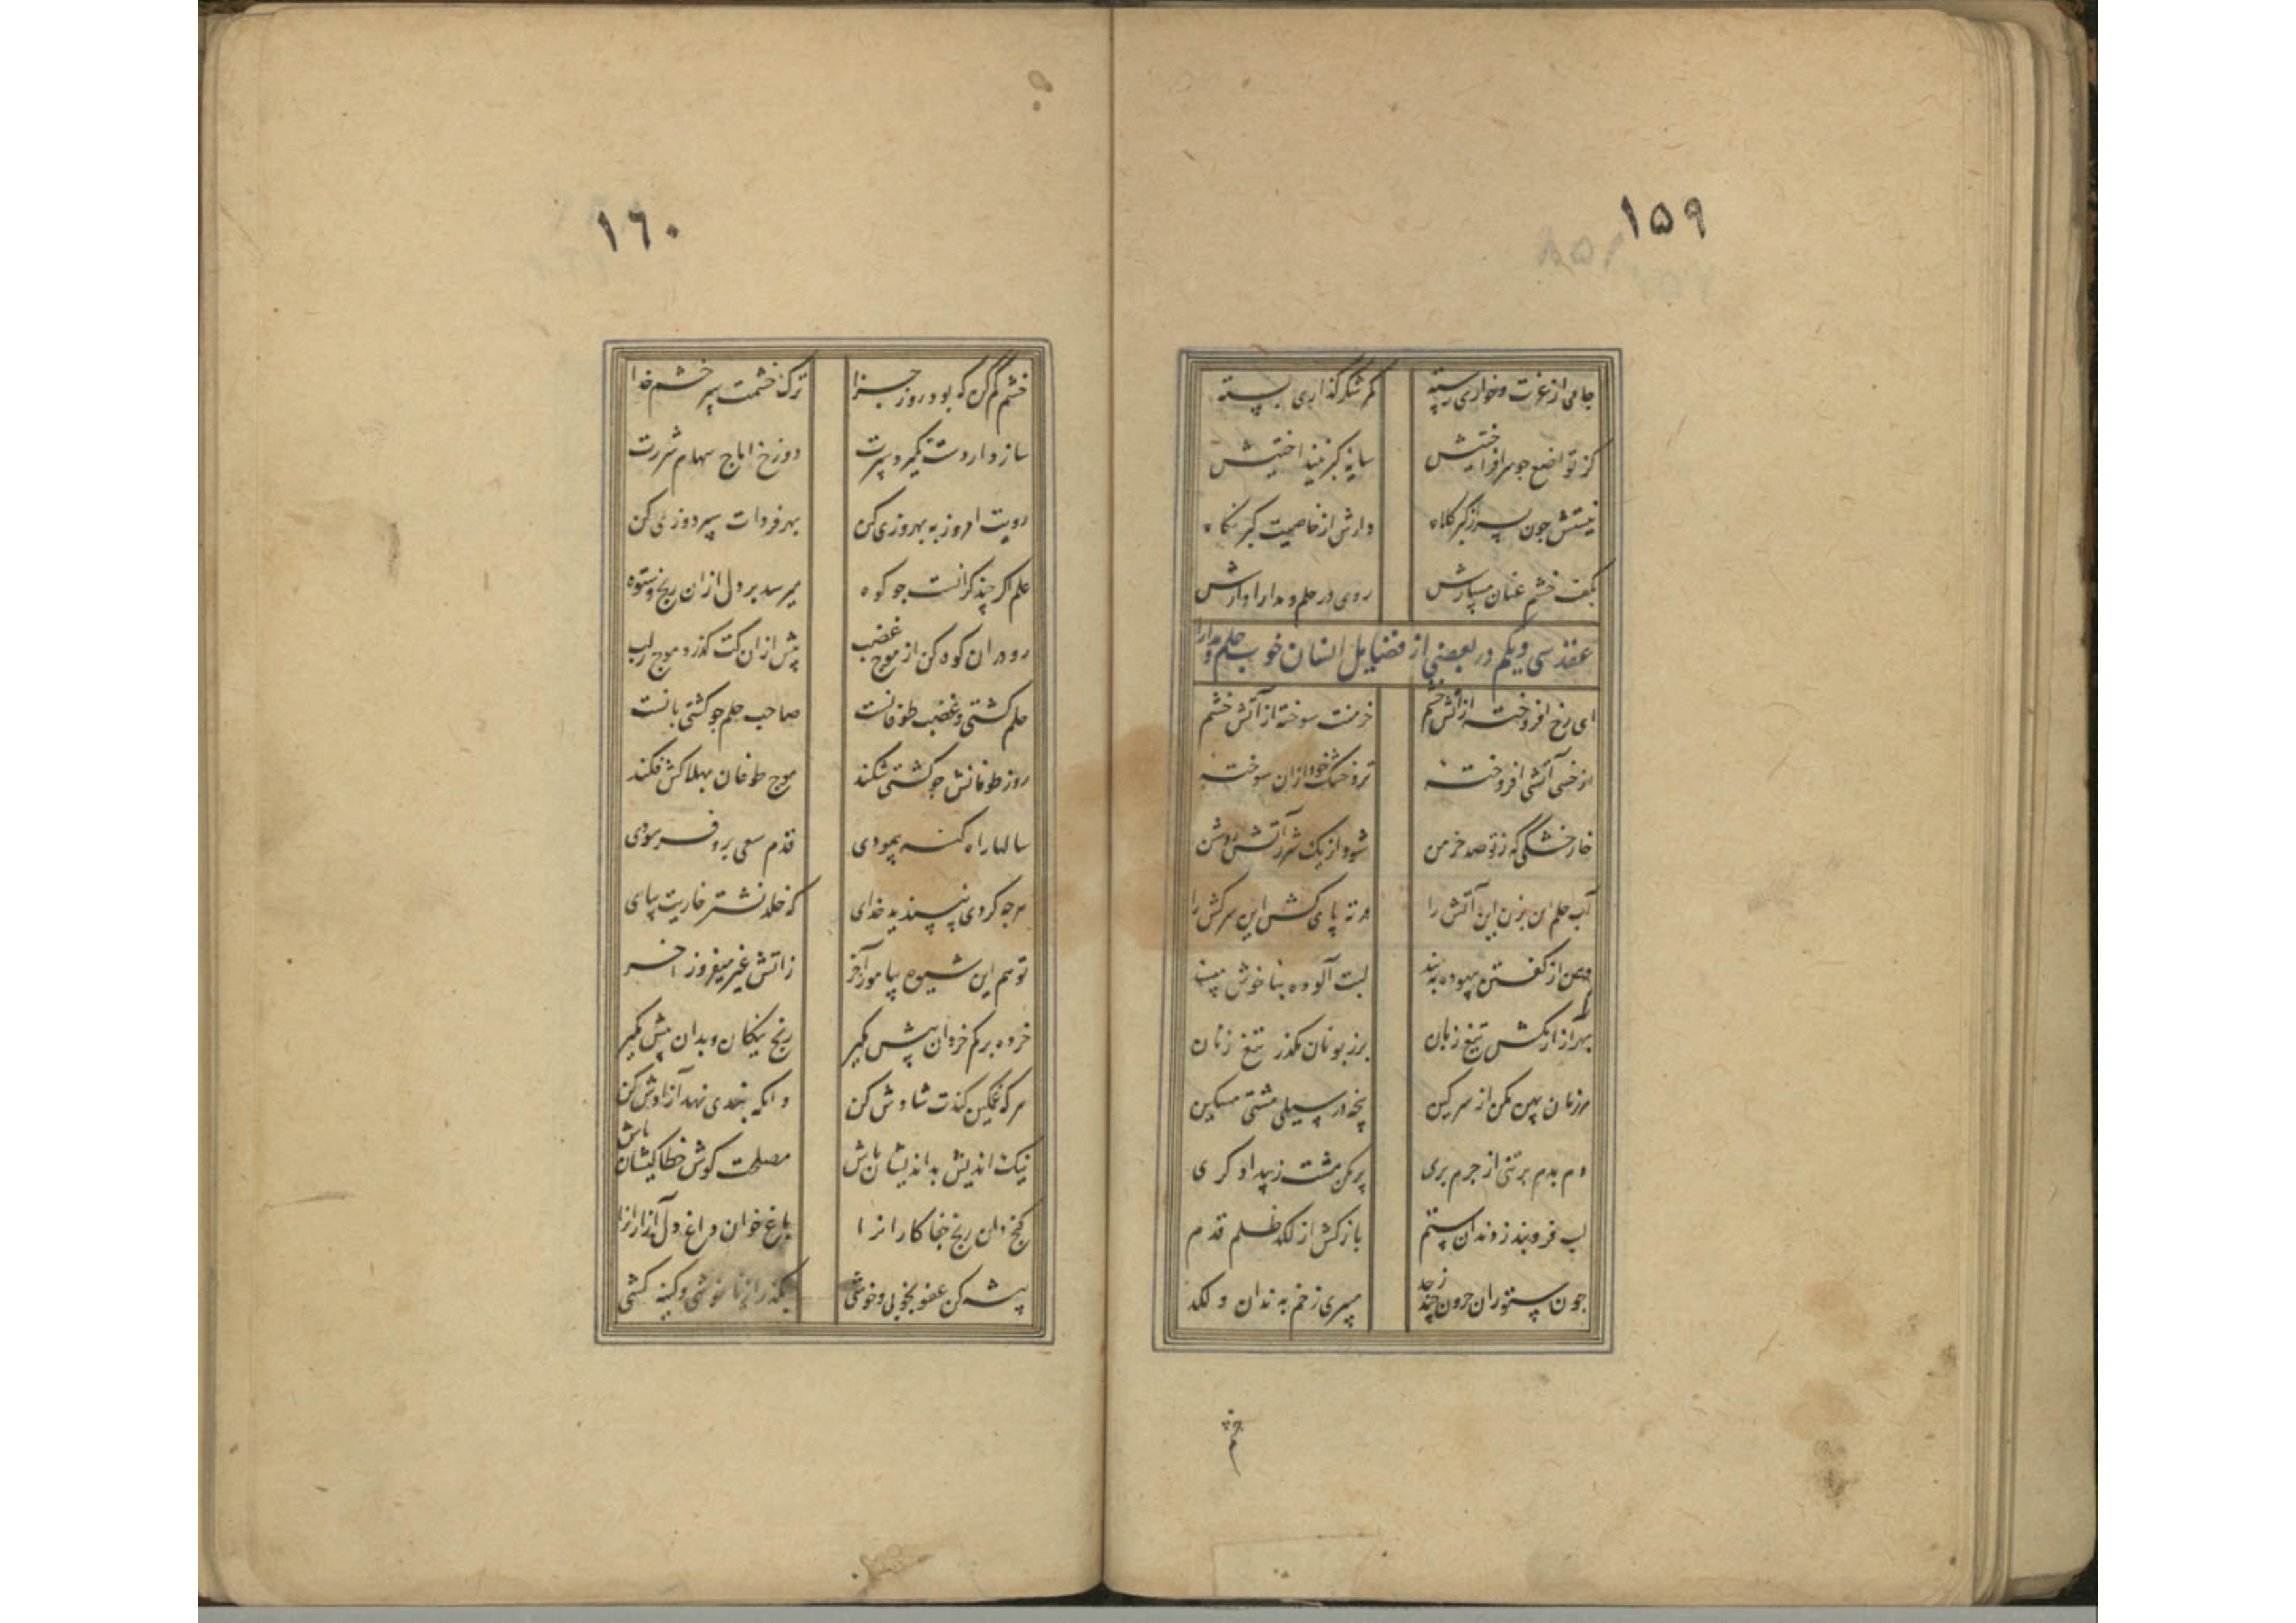 ۱۵۹
جامی از عزت و خواری رسته کمر شکر گذاری بسته
کز تواضع چو سر افراختیش سایهٔ کبر نینداختیش
نیستش چون بسر از کبر کلاه دارش از خاصیت کبر نگاه
بکف خشم عنان مسپارش روی در حلم و مدارا دارش
عقد سی و یکم در بعضی از فضایل انسان خوب حلم و مدارا
ای رخ افروخته از آتش خشم خرمنت سوخته از آتش خشم
از خسی آتشی افروخته تر و خشک خود ازان سوخته
خار خشکی که ز تو صد خرمن شود از یک شرر آتش روشن
آب حلم بزن این آتش را ته پای کش این سرکش را
دهن از گفتن بیهوده ببند لبت آلوده بناخوش مپسند
بهر آزار مکش تیغ زبان بر زبونان مگذر تیغ زنان
مرزمان پهن مکن از سر کین پنجه در سیلی مشتی مسکین
دم بدم بر تنی از جرم بری پر مکن مشت ز بیدادگری
لب فروبند ز دندان ستم بازکش از لگد ظلم قدم
چون ستوران حرون چند ز حد میبری زخم به دندان و لگد
خشم
۱٦۰
خشم کم کن که بود روز جزا ترک خشمت سپر خشم خدا
سازد ار دست نگیرد سپرت دوزخ آماج سهام شررت
رویت امروز به بهروزی کن بهر فردات سپر دوزی کن
علم اگر چند گرانست چو کوه میرسد بر دل ازان رنج و ستوه
رو دران کوه کن از موج غضب پیش ازان کت گذرد موج ز لب
حلم کشتی و غضب طوفانست صاحب حلم چو کشتی بانست
روز طوفانش چو کشتی شکند موج طوفان بهلاکش فکند
سالها راه گنه پیمودی قدم سعی برو فرسودی
هرچه کردی نپسندید خدای که خلد نشتر خاریت بپای
تو هم این شیوه بیاموز آخر ز آتش غیر میفروز آخر
خرده بر کم خردان پیش مگیر رنج نیکان و بدان پیش مگیر
هر که غمگین کندت شادش کن وانکه بندی نهد آزادش کن
نیک اندیش بداندیشان باش مصلحت کوش خطا کیشان باش
گنج دان رنج جفاکارانرا باغ خوان داغ دل آزارانرا
پیشه کن عفو بخوبی و خوشی بگذر از ناخوشی و کینه کشی